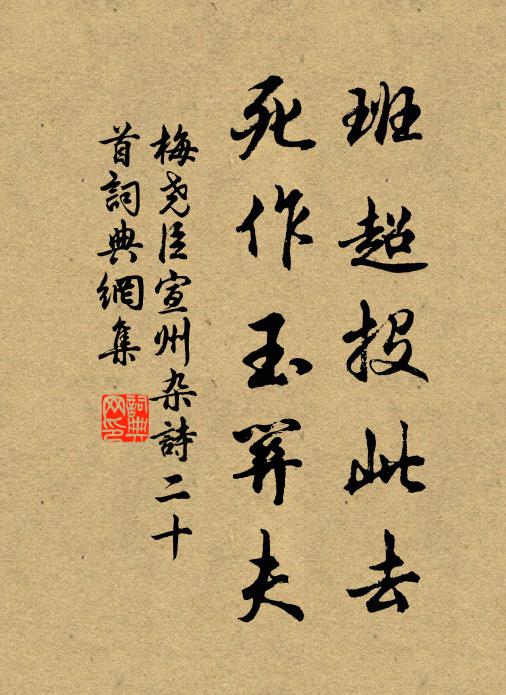 班超投此去
死作玉關夫
梅尧臣宣州杂詩二十
首詞典網集
詞典
网印